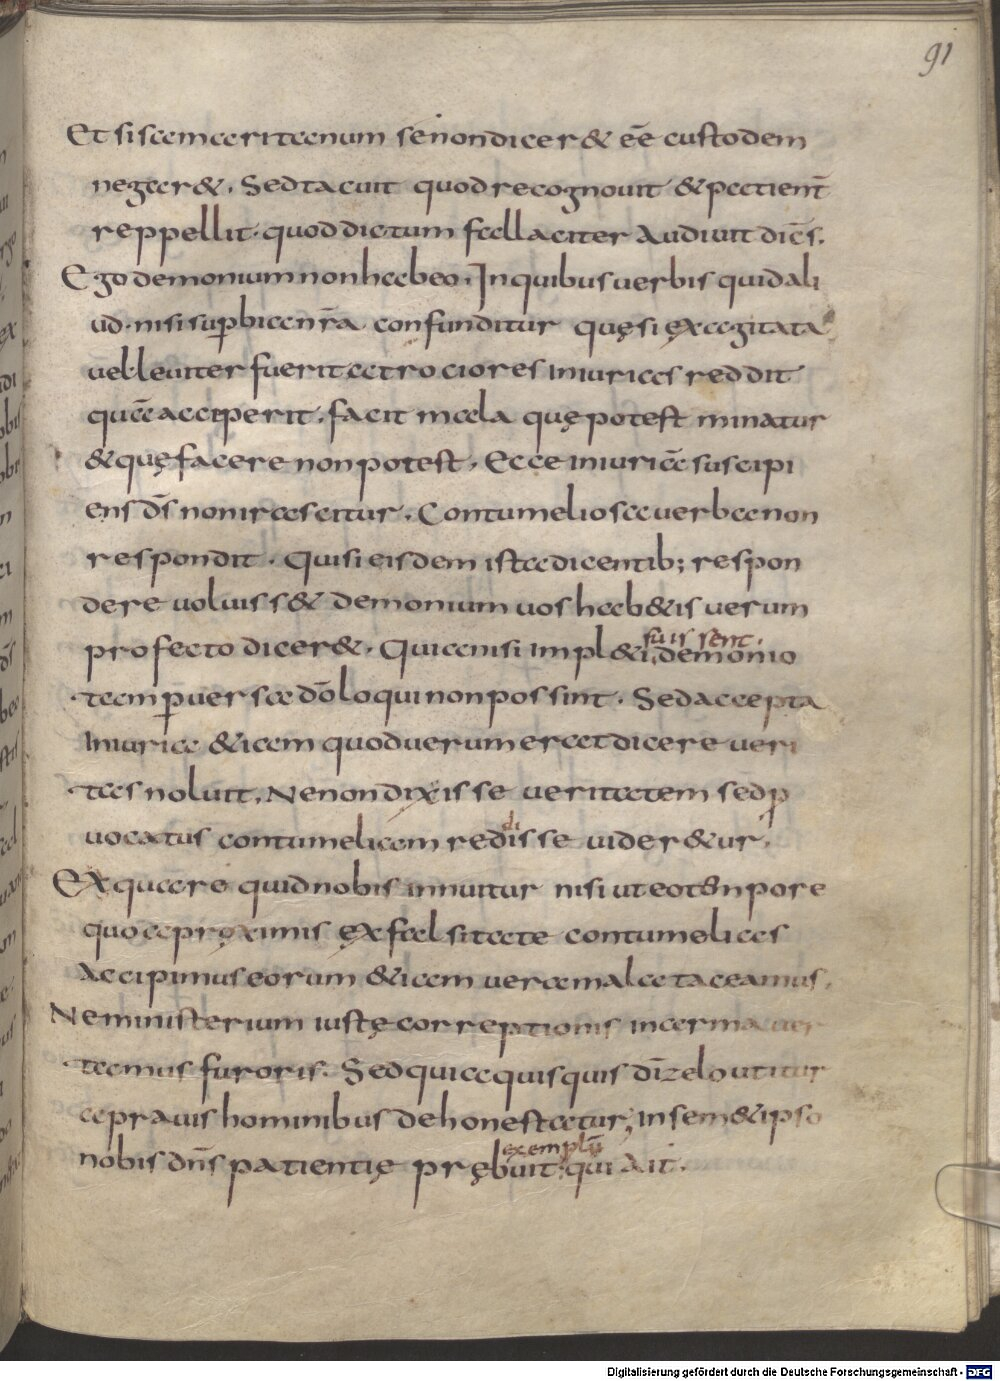 91
Et si samaritanum se non dicer& eē custodem
negar& . Sed tacuit quod recognouit & patient̄
reppellit . quod dictum fallaciter Audiuit diēs .
Ego demonium non habeo . In quibus uerbis quid ali
ud . nisi sup̄bia nr̄a confunditur quę si ęxagitata
uel leuiter fuerit atrociores iniurias reddit
quā acciperit . facit mala quę potest minatur
& quę facere non potest . Ecce iniuriā suscipi
ens dī non irascitur . Contumeliosa uerba non
respondit . Qui si eisdem ista dicentib; respon
dere uoluiss& demonium uos hab&is uerum
profecto dicer& . Quia nisi impl&i demonio
suis sent .
tam p̄uersa dō loqui non possint . Sed accepta
iniuria &iam quod uerum erat dicere ueri
tas noluit , Ne non dixisse ueritatem sed p̄
uocatus contumeliam redisse uider&ur .
di
Ex qua re quid nobis innuitur nisi ut eo tempore
quo a proximis ęx falsitate contumelias
Accipimus eorum &iam uera mala taceamus .
Ne ministerium iustę correptionis in arma uer
tamus furoris . Sed quia quisquis dī zelo utitur
a prauis hominibus dehonestatur ; in sem&ipso
nobis dn̄s patientię prębuit qui Ait .
exemplū
Digitalisierung gefördert durch die Deutsche Forschungsgemeinschaft - DFG